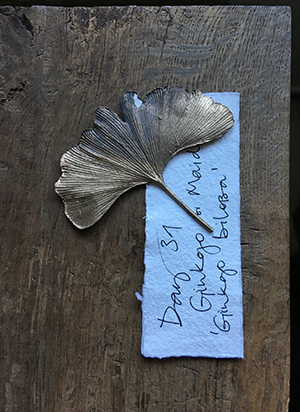 Day 31
Ginkgo or Maid
'Ginkgo biloba'